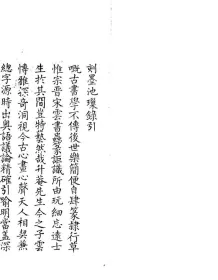 刻墨池璅錄引
嘅古書學不傳後世樂簡便自肆篆隸行草
惟宗晉宋雲書蟲篆謳識所由玩細忘遠士
生於其間豈特藝然哉升菴先生今之子雲
博雅深奇洞視今古心畫心聲天人相契兼
總字源時出奧語議論精確引喻明當蓋深